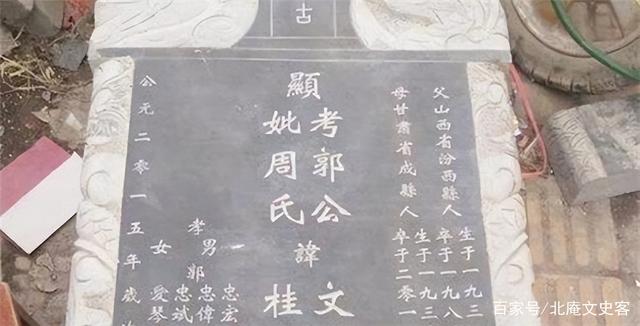 古
父山西省汾西縣人
生于一九三
卒于一九八
母甘肅省成縣人
生于一九三
卒于二零一
顯
考郭公
妣周氏
諱
文
桂
孝男郭
忠宏
忠偉
忠斌
女愛琴
公元二零一五年歲
百家号/北庵文史客